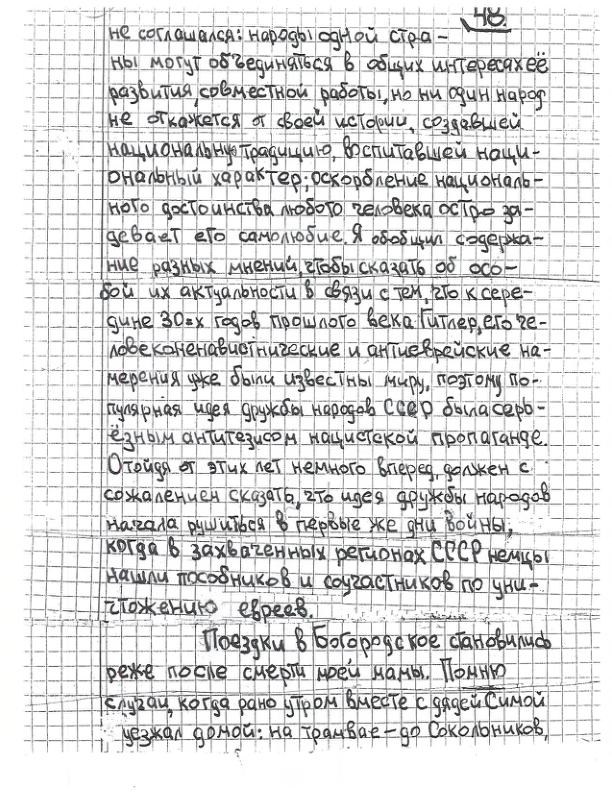 48.
не соглашался: народы одной стра-
ны могут объединяться в общих интересах её
развития, совместной работы, но ни один народ
не откажется от своей истории, создавшей
национальную традицию, воспитавшей наци-
ональный характер; оскорбление националь-
ного достоинства любого человека остро за-
девает его самолюбие. Я обобщил содержа-
ние разных мнений, чтобы сказать об осо-
бой их актуальности в связи с тем, что к сере-
дине 30=х годов прошлого века Гитлер, его че-
ловеконенавистнические и антиеврейские на-
мерения уже были известны миру, поэтому по-
пулярная идея дружбы народов СССР была серь-
ёзным антитезисом нацистской пропаганде.
Отойдя от этих лет немного вперед, должен с
сожалением сказать, что идея дружбы народов
начала рушиться в первые же дни войны,
когда в захваченных регионах СССР немцы
нашли пособников и соучастников по уни-
чтожению евреев.
Поездки в Богородское становились
реже после смерти моей мамы. Помню
случаи, когда рано утром вместе с дядей Симой
уезжал домой: на трамвае – до Сокольников,